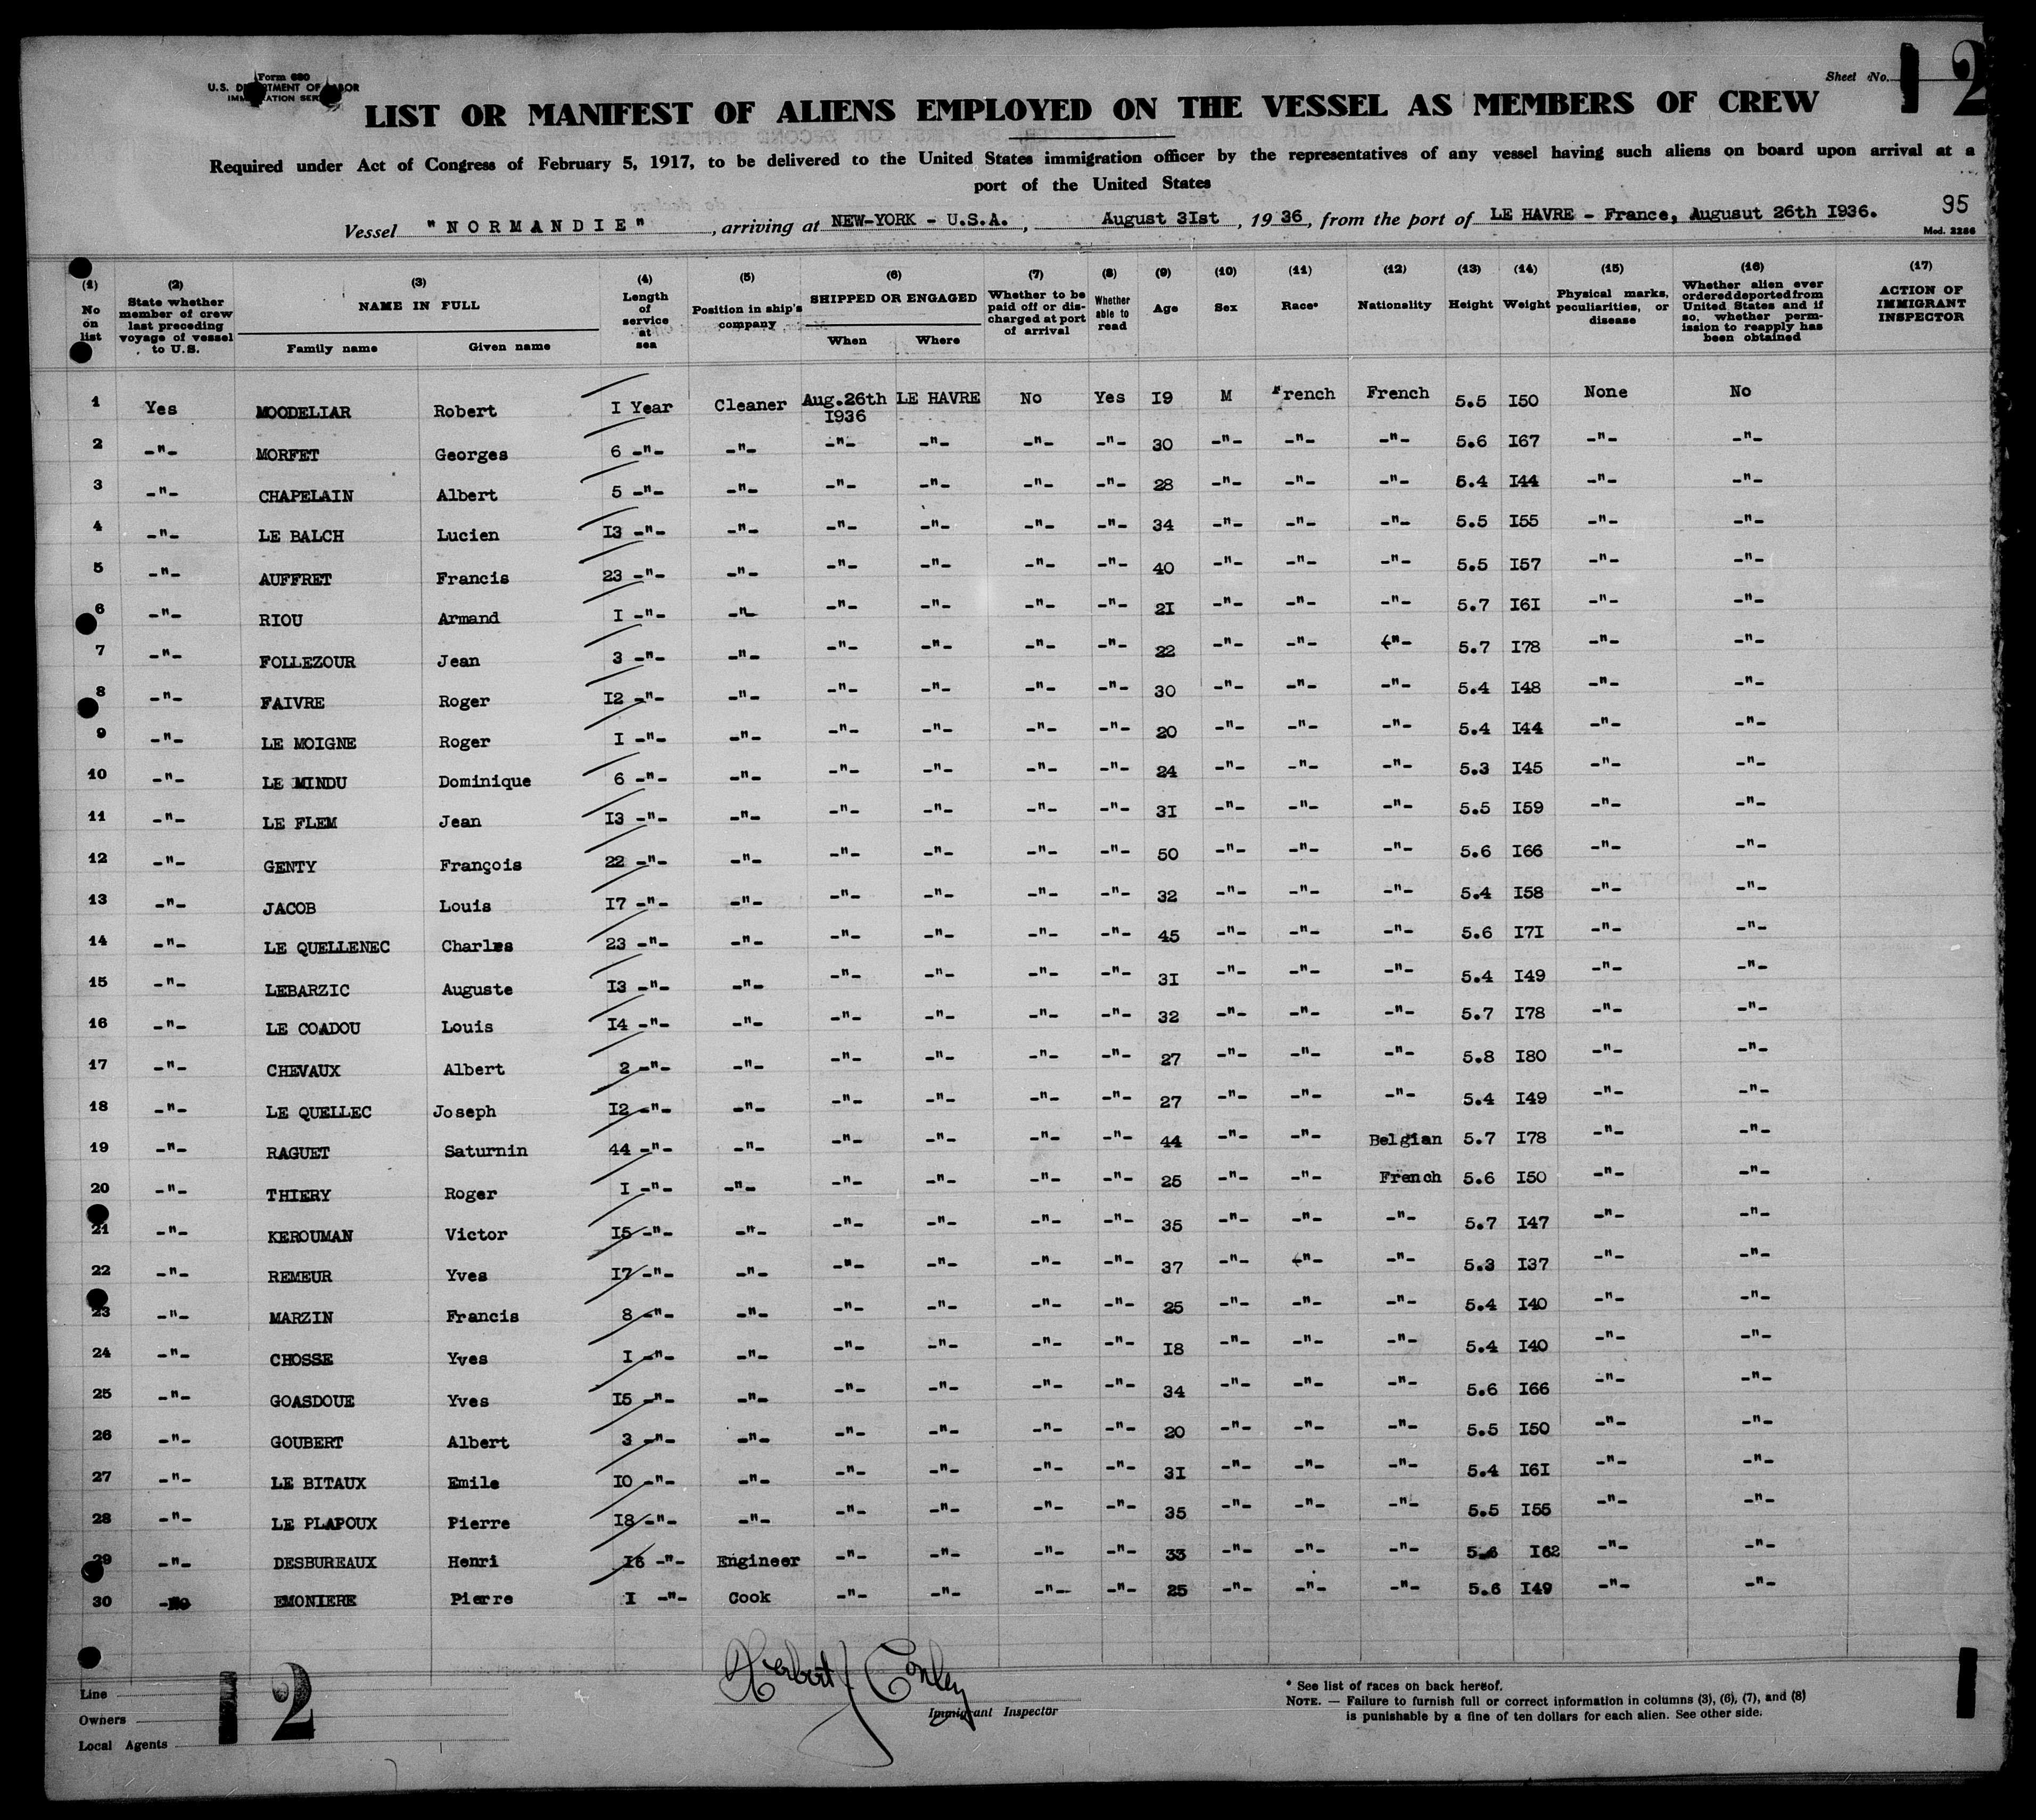 Form 680
U.S. DEPARTMENT OF LABOR
IMMIGRATION SERVICE
Sheet No. 12
LIST OR MANIFEST OF ALIENS EMPLOYED ON THE VESSEL AS MEMBERS OF CREW
Required under Act of Congress of February 5, 1917, to be delivered to the United States immigration officer by the representatives of any vessel having such aliens on board upon arrival at a
port of the United States
Vessel "NORMANDIE", arriving at NEW-YORK - U.S.A., August 3Ist, 1936, from the port of LE HAVRE - France, Augusut 26th I936. 95
Mod. 2286
(1) No on list (2) State whether member of crew last preceding voyage of vessel to U.S. (3) NAME IN FULL Family name Given name (4) Length of service at sea (5) Position in ship's company (6) SHIPPED OR ENGAGED When Where (7) Whether to be paid off or discharged at port of arrival (8) Whether able to read (9) Age (10) Sex (11) Race* (12) Nationality (13) Height (14) Weight (15) Physical marks, peculiarities, or disease (16) Whether alien ever ordered deported from United States and if so, whether permission to reapply has been obtained (17) ACTION OF IMMIGRANT INSPECTOR
1 Yes MOODELIAR Robert I Year Cleaner Aug.26th I936 LE HAVRE No Yes I9 M French French 5.5 I50 None No
2 -"- MORFET Georges 6 -"- -"- -"- -"- -"- -"- 30 -"- -"- -"- 5.6 I67 -"- -"-
3 -"- CHAPELAIN Albert 5 -"- -"- -"- -"- -"- -"- 28 -"- -"- -"- 5.4 I44 -"- -"-
4 -"- LE BALCH Lucien I3 -"- -"- -"- -"- -"- -"- 34 -"- -"- -"- 5.5 I55 -"- -"-
5 -"- AUFFRET Francis 23 -"- -"- -"- -"- -"- -"- 40 -"- -"- -"- 5.5 I57 -"- -"-
6 -"- RIOU Armand I -"- -"- -"- -"- -"- -"- 2I -"- -"- -"- 5.7 I6I -"- -"-
7 -"- FOLLEZOUR Jean 3 -"- -"- -"- -"- -"- -"- 22 -"- -"- -"- 5.7 I78 -"- -"-
8 -"- FAIVRE Roger I2 -"- -"- -"- -"- -"- -"- 30 -"- -"- -"- 5.4 I48 -"- -"-
9 -"- LE MOIGNE Roger I -"- -"- -"- -"- -"- -"- 20 -"- -"- -"- 5.4 I44 -"- -"-
10 -"- LE MINDU Dominique 6 -"- -"- -"- -"- -"- -"- 24 -"- -"- -"- 5.3 I45 -"- -"-
11 -"- LE FLEM Jean I3 -"- -"- -"- -"- -"- -"- 3I -"- -"- -"- 5.5 I59 -"- -"-
12 -"- GENTY François 22 -"- -"- -"- -"- -"- -"- 50 -"- -"- -"- 5.6 I66 -"- -"-
13 -"- JACOB Louis I7 -"- -"- -"- -"- -"- -"- 32 -"- -"- -"- 5.4 I58 -"- -"-
14 -"- LE QUELLENEC Charles 23 -"- -"- -"- -"- -"- -"- 45 -"- -"- -"- 5.6 I7I -"- -"-
15 -"- LEBARZIC Auguste I3 -"- -"- -"- -"- -"- -"- 3I -"- -"- -"- 5.4 I49 -"- -"-
16 -"- LE COADOU Louis I4 -"- -"- -"- -"- -"- -"- 32 -"- -"- -"- 5.7 I78 -"- -"-
17 -"- CHEVAUX Albert 2 -"- -"- -"- -"- -"- -"- 27 -"- -"- -"- 5.8 I80 -"- -"-
18 -"- LE QUELLEC Joseph I2 -"- -"- -"- -"- -"- -"- 27 -"- -"- -"- 5.4 I49 -"- -"-
19 -"- RAGUET Saturnin 44 -"- -"- -"- -"- -"- -"- 44 -"- -"- Belgian 5.7 I78 -"- -"-
20 -"- THIERY Roger I -"- -"- -"- -"- -"- -"- 25 -"- -"- French 5.6 I50 -"- -"-
21 -"- KEROUMAN Victor I5 -"- -"- -"- -"- -"- -"- 35 -"- -"- -"- 5.7 I47 -"- -"-
22 -"- REMEUR Yves I7 -"- -"- -"- -"- -"- -"- 37 -"- -"- -"- 5.3 I37 -"- -"-
23 -"- MARZIN Francis 8 -"- -"- -"- -"- -"- -"- 25 -"- -"- -"- 5.4 I40 -"- -"-
24 -"- CHOSSE Yves I -"- -"- -"- -"- -"- -"- I8 -"- -"- -"- 5.4 I40 -"- -"-
25 -"- GOASDOUE Yves I5 -"- -"- -"- -"- -"- -"- 34 -"- -"- -"- 5.6 I66 -"- -"-
26 -"- GOUBERT Albert 3 -"- -"- -"- -"- -"- -"- 20 -"- -"- -"- 5.5 I50 -"- -"-
27 -"- LE BITAUX Emile I0 -"- -"- -"- -"- -"- -"- 3I -"- -"- -"- 5.4 I6I -"- -"-
28 -"- LE PLAPOUX Pierre I8 -"- -"- -"- -"- -"- -"- 35 -"- -"- -"- 5.5 I55 -"- -"-
29 -"- DESBUREAUX Henri I6 -"- Engineer -"- -"- -"- -"- 33 -"- -"- -"- 5.6 I62 -"- -"-
30 EMONIERE Pierre I -"- Cook -"- -"- -"- -"- 25 -"- -"- -"- 5.6 I49 -"- -"-
Herbert J. Conley
Immigrant Inspector
Line
Owners
Local Agents
12
* See list of races on back hereof.
NOTE. — Failure to furnish full or correct information in columns (3), (6), (7), and (8)
is punishable by a fine of ten dollars for each alien. See other side.
1